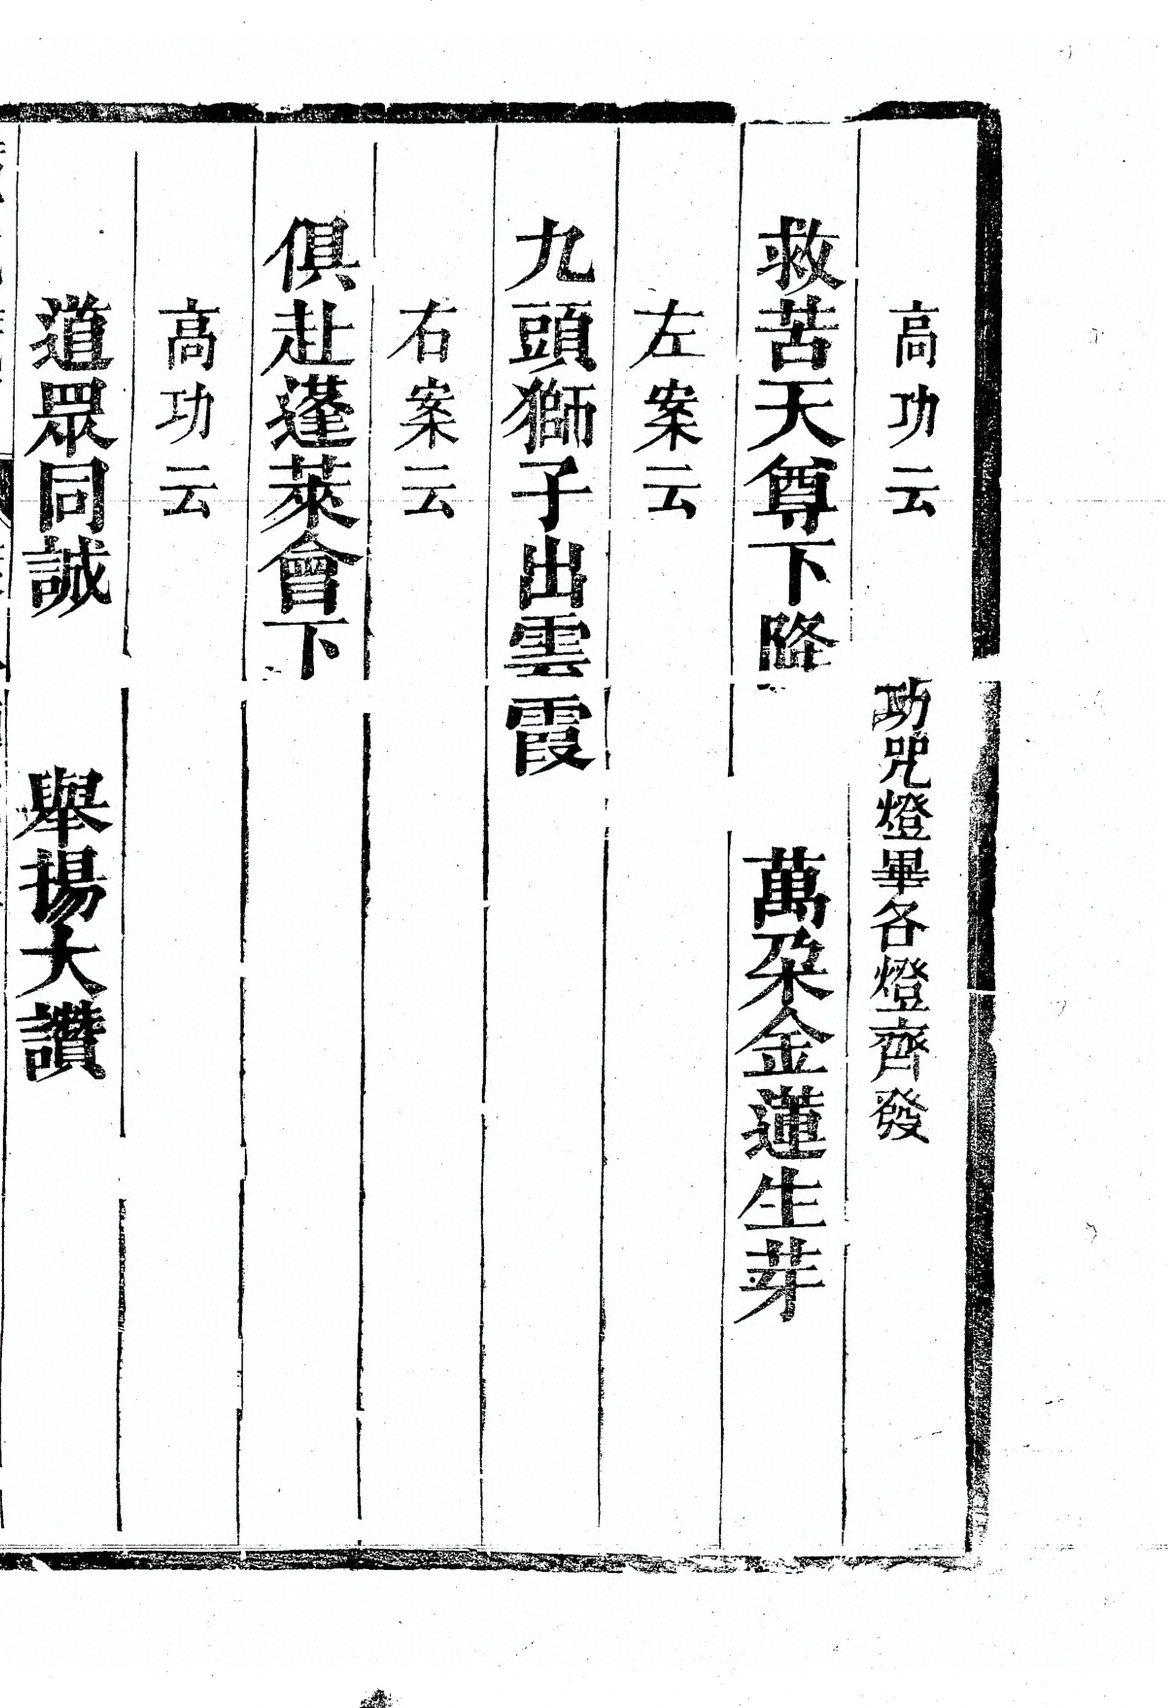 高功云　功咒燈畢各燈齊發
救苦天尊下降　萬朶金蓮生芽
左案云
九頭獅子出雲霞
右案云
俱赴蓬萊會下
高功云
道眾同誠　舉揚大讚